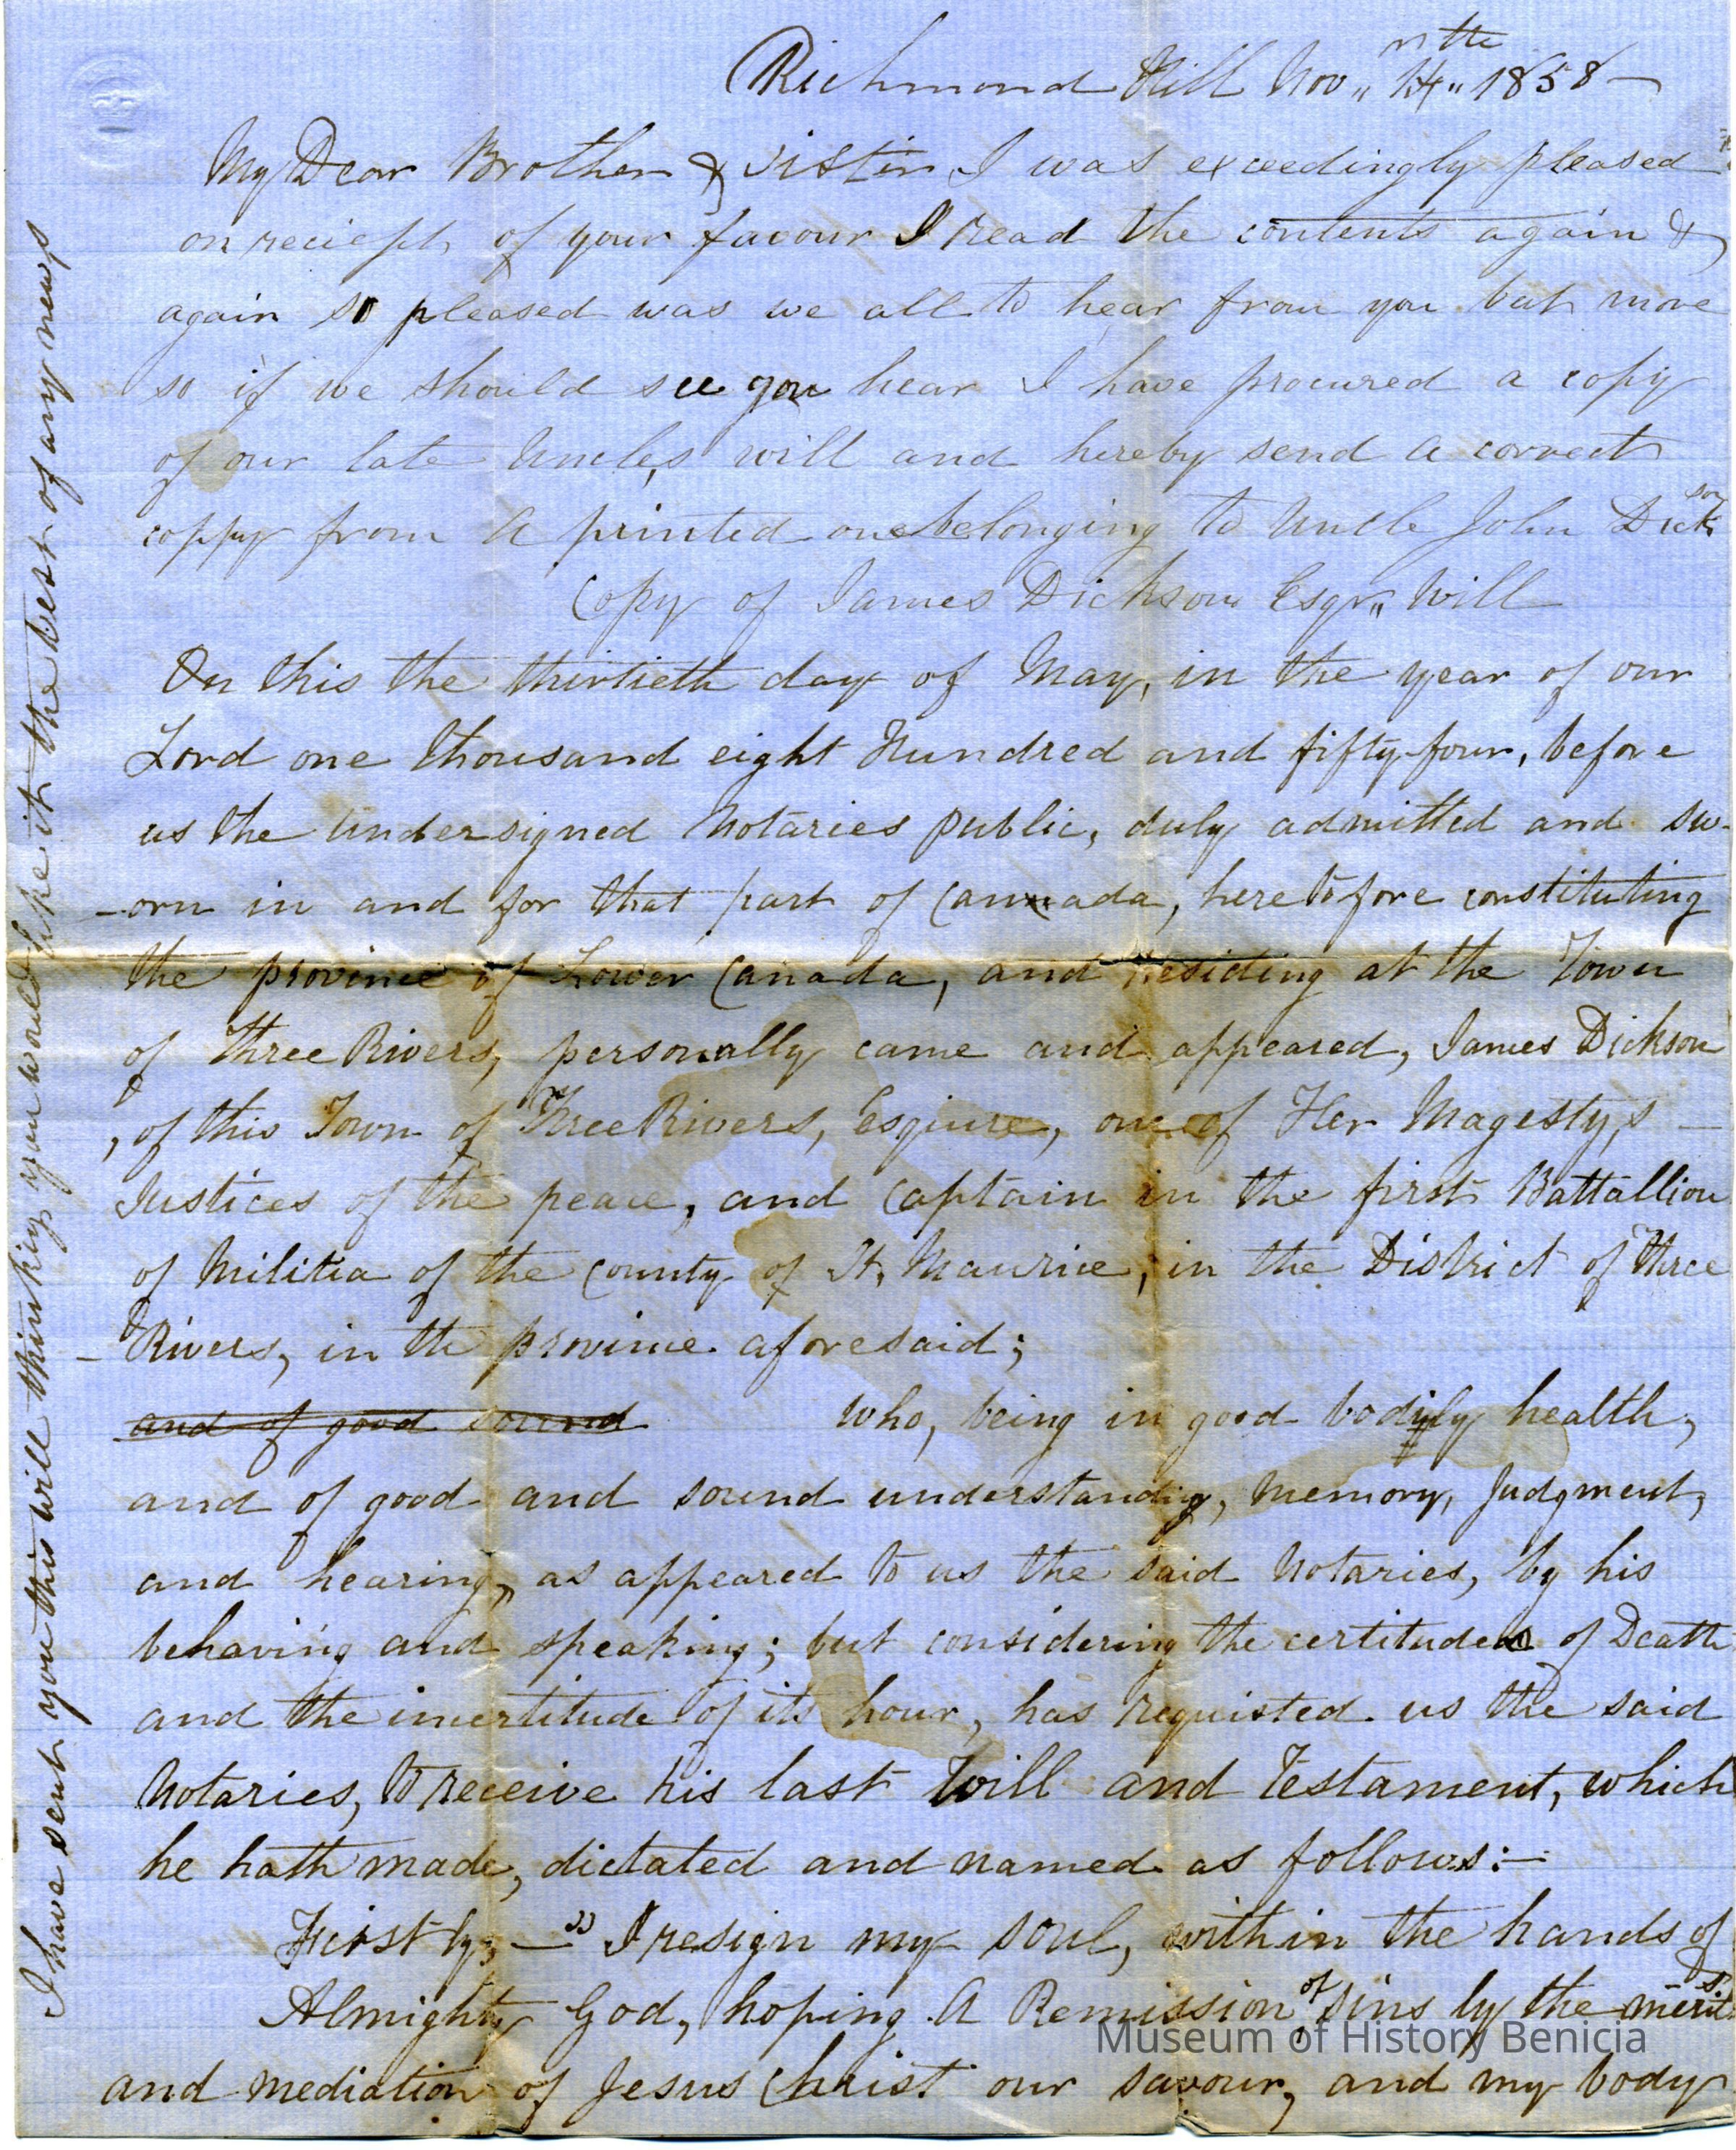 Richmond Hill Nov,, 14th,, 1858 —
My Dear Brother & Sister I was exceedingly pleased
on reciept of your favour I read the contents again &
again so pleased was we all to hear from you but more
so if we should see you hear I have procured a copy
of our late Uncle,s will and hereby send a correct
coppy from a printed one belonging to Uncle John Dickson
Copy of James Dickson Esqr,, Will
On this the thirtieth day of May, in the year of our
Lord one thousand eight Hundred and fifty-four, before
us the undersigned Notaries public, duly admitted and sw-
-orn in and for that part of Canada, heretofore constituting
the province of Lower Canada, and residing at the Town
of Three Rivers, personally came and appeared, James Dickson
, of this Town of Three Rivers, Esqiure, one of Her Magesty,s —
Justices of the peace, and Captain in the first Battallion
of Militia of the County of St, Maurice, in the District of Three
- Rivers, in the province aforesaid;
and of good sound who, being in good bodily health,
and of good and sound understanding, memory, Judgment,
and hearing, as appeared to us the said Notaries, by his
behaving and speaking; but considering the certitude of Death
and the incertitude of its hour, has requisted us the said
Notaries, to receive his last Will and Testament, which
he hath made, dictated and named as follows:—
Firstly, — " I resign my soul, within the hands of
Almighty God, hoping A Remission of sins by the merits
and mediation of Jesus Christ our savour, and my body
I have sent you this will thinking you would like it the best of any news
Museum of History Benicia